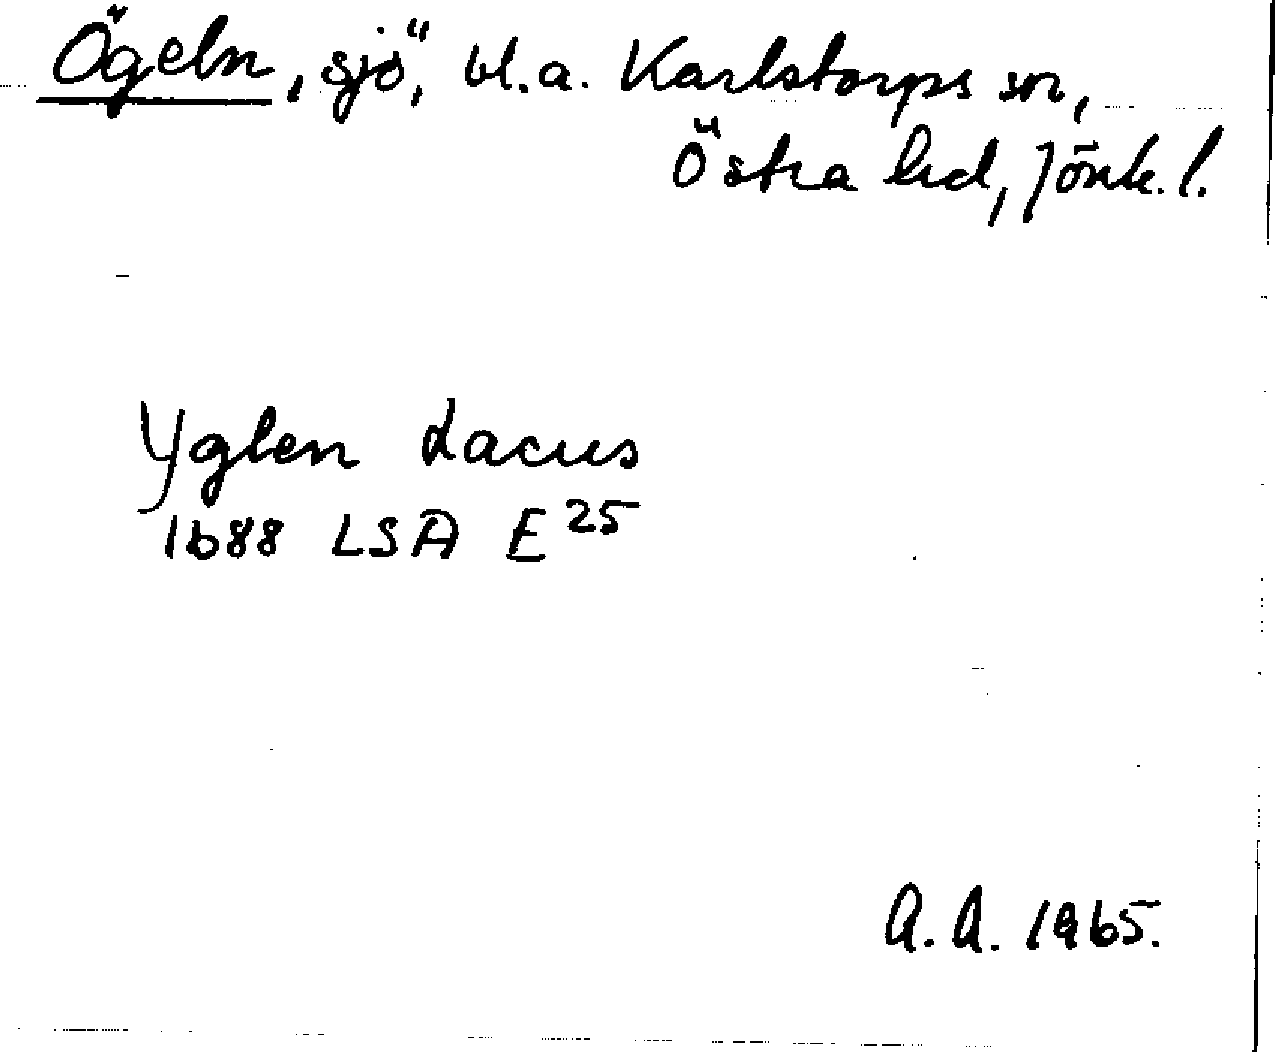 Ögeln, sjö, bl.a. Karlstorps sn,
Östra hd, Jönk. l.
Yglen Lacus
1688 LSA E 25
A. A. 1965.